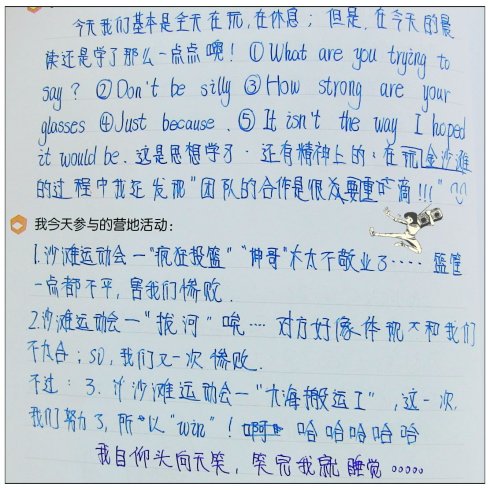 今天我们基本是全天在玩,在休息；但是,在今天的晨
读还是学了那么一点点噢！①What are you trying to
say？②Don't be silly ③How strong are your
glasses ④Just because.⑤It isn't the way I hoped
it would be.这是思想学习·还有精神上的：在玩金沙滩
的过程中我还发那"团队的合作是很重要滴!!!"
我今天参与的营地活动：
1.沙滩运动会—"疯狂投篮""坤哥"太不敬业了····篮筐
一点都不平,害我们惨败.
2.沙滩运动会—"拔河"唉····对方好像体现不和我们
不九合；so,我们又一次惨败.
不过：3.沙滩运动会—"大海搬运工",这一次,
我们努力了,所以"win"！啊 哈哈哈哈哈
我自仰头向天笑,笑完我就睡觉·····